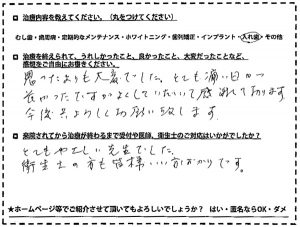 治療内容を教えてください。(丸をつけてください)
むし歯・歯周病・定期的なメンテナンス・ホワイトニング・歯列矯正・インプラント・入れ歯・その他
治療を終えられて、うれしかったこと、良かったこと、大変だったことなど、
感想をご自由にお書きください。
思ったよりも大変でした。とても痛い日が
長かったですがよくしていただいて感謝して居ります。
今後共よろしくお願い致します。
来院されてから治療が終わるまで受付や医師、衛生士のご対応はいかがでしたか?
とてもやさしい先生でした。
衛生士の方も皆様いい方ばかりです。
★ホームページ等でご紹介させて頂いてもよろしいでしょうか? はい・匿名ならOK・ダメ